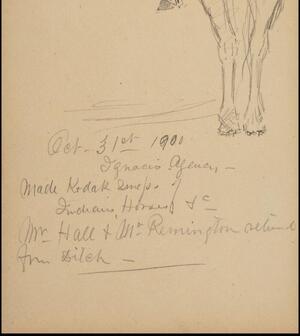 Oct. 31st 1900
Ignacio Agency, –
Made Kodak snaps of
Indians, Horses, &c
Mr Hall & Mr Remington return
from Ditch –